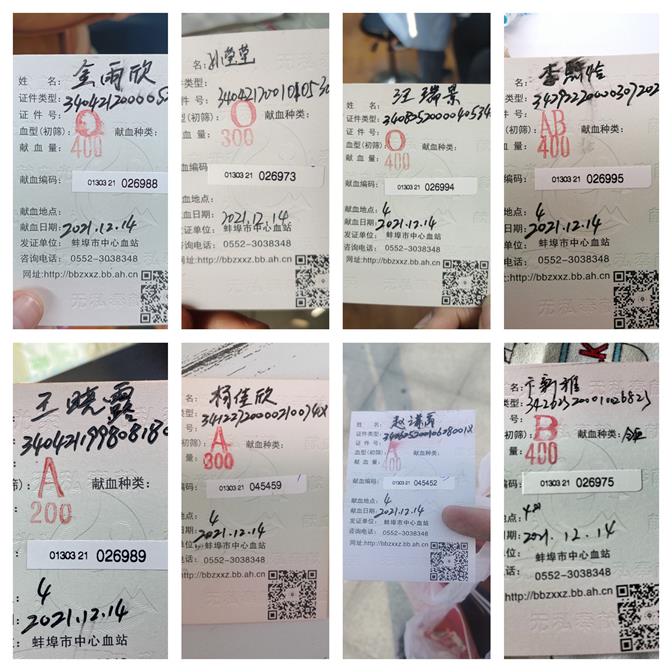 姓 名: 金雨欣
证件类型:
证 件 号:
血型(初筛) O 献血种类:
献 血 量: 400
献血编码: 01303 21 026988
献血地点:
献血日期: 2021.12.14
发证单位: 蚌埠市中心血站
咨询电话: 0552-3038348
网址:http://bbzxxz.bb.ah.cn
名:
类型:
件 号:
(初筛) O 献血种类:
血 量: 300
编码: 01303 21 026973
地点:
血日期: 2021.12.14
证单位: 蚌埠市中心血站
询电话: 0552-3038348
http://bbzxxz.bb.ah.cn
姓 名: 汪瑞景
证件类型:
证 件 号:
血型(初筛) O 献血种类:
献 血 量: 400
献血编码: 01303 21 026994
献血地点: 4
献血日期: 2021.12.14
发证单位: 蚌埠市中心血站
咨询电话: 0552-3038348
网址:http://bbzxxz.bb.ah.cn
姓 名:
证件类型:
证 件 号:
血型(初筛) AB 献血种类:
献 血 量: 400
献血编码: 01303 21 026995
献血地点: 4
献血日期: 2021.12.14
发证单位: 蚌埠市中心血站
咨询电话: 0552-3038348
网址:http://bbzxxz.bb.ah.cn
王晓露
筛) A 献血种类:
200
01303 21 026989
4
2021.12.14
蚌埠市中心血站
名: 杨佳欣
类型:
号:
初筛) A 献血种类:
量: 300
编码: 01303 21 045459
地点: 4
日期: 2021.12.14
单位: 蚌埠市中心血站
电话: 0552-3038348
http://bbzxxz.bb.ah.cn
姓 名:
证件类型:
证 件 号:
血型(初筛) A 献血种类:
献 血 量: 400
献血编码: 01303 21 045452
献血地点: 4
献血日期: 2021.12.14
发证单位: 蚌埠市中心血站
咨询电话: 0552-3038348
网址:http://bbzxxz.bb.ah.cn
名:
类型:
号:
初筛) B 献血种类:
量: 400
编码: 01303 21 026975
地点:
日期: 2021.12.14
单位: 蚌埠市中心血站
电话: 0552-3038348
http://bbzxxz.bb.ah.cn